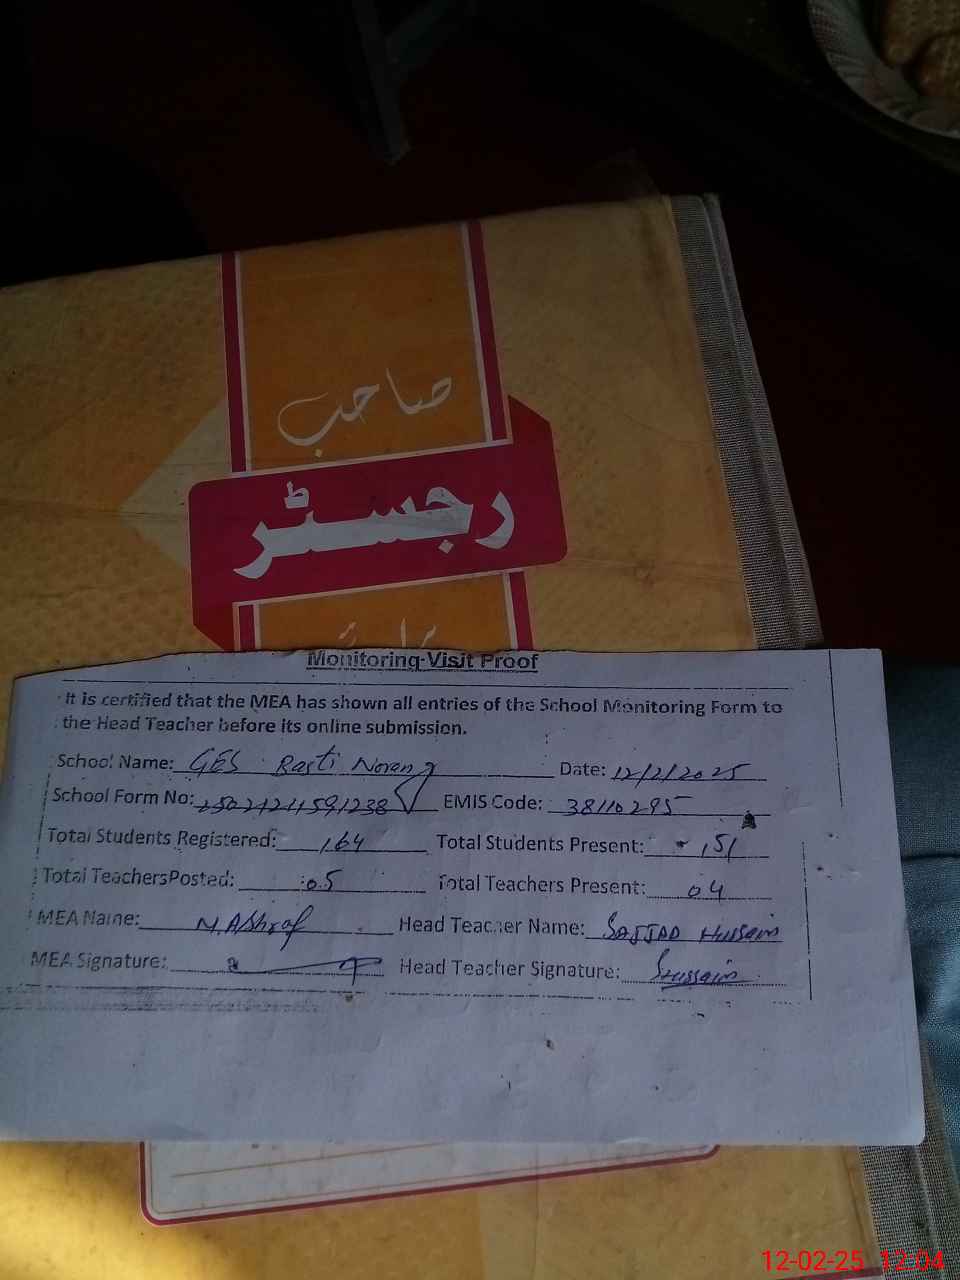 صاحب
رجسٹر
برائے
Monitoring Visit Proof
It is certified that the MEA has shown all entries of the School Monitoring Form to
the Head Teacher before its online submission.
School Name: GES Basti Norang Date: 12/2/2025
School Form No: EMIS Code: 38110295
Total Students Registered: 164 Total Students Present: 151
Total TeachersPosted: 05 Total Teachers Present: 04
MEA Name: M.AShraf Head Teacher Name: SAJJAD HUSSAIN
MEA Signature: Head Teacher Signature: SHussain
12-02-25 12:04